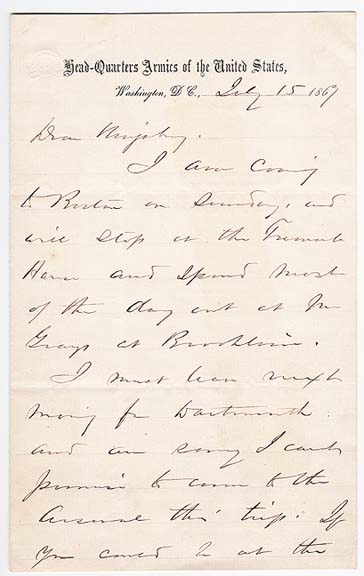 Head-Quarters Armies of the United States,
Washington, D.C., July 15 1869
Dear Kingsbury.
I am coming
to Boston on Sunday, and
will stop at the Tremont
House and spend most
of the day out at Mr
Grays at Brookline.
I must leave next
morning for Dartmouth.
and am sorry I cant
promise to come to the
Arsenal this trip. If
you could be at the